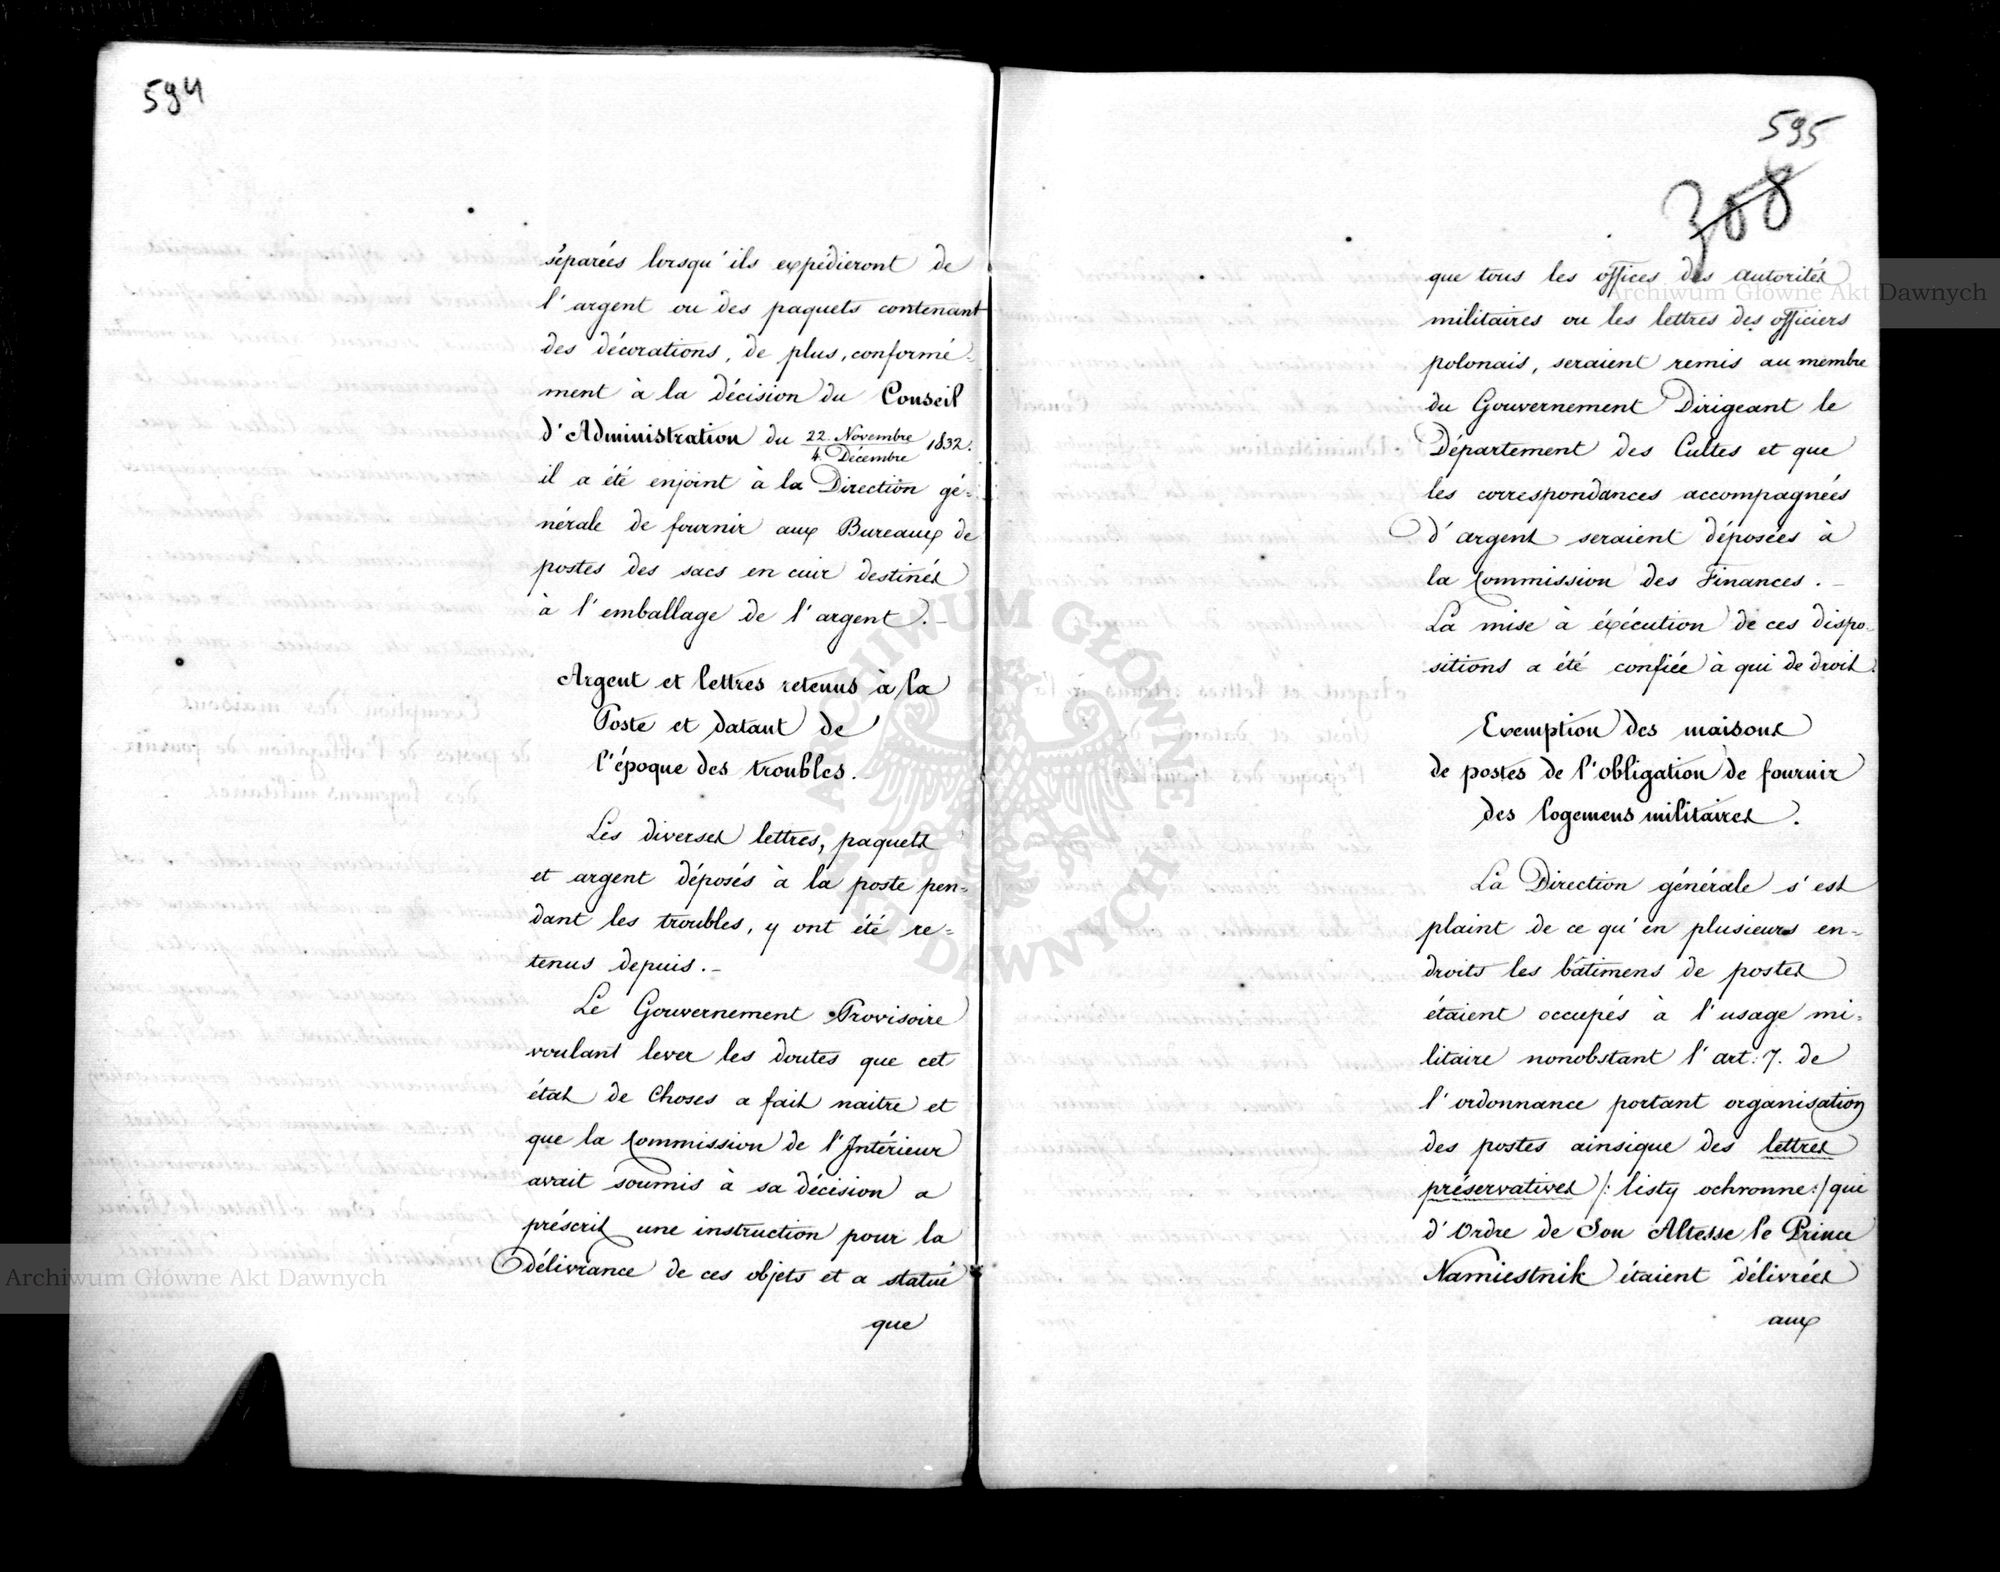 594
séparées lorsqu'ils expédieront de
l'argent ou des paquets contenant
des décorations, de plus, conformé-
ment à la décision du Conseil
d'Administration du 22. Novembre / 4. Décembre 1832.
il a été enjoint à la Direction gé-
nérale de fournir aux Bureaux de
postes des sacs en cuir destinés
à l'emballage de l'argent.-
Argent et lettres retenus à la
Poste et datant de
l'époque des troubles.
Les diverses lettres, paquets
et argent déposés à la poste pen-
dant les troubles, y ont été re-
tenus depuis.-
Le Gouvernement Provisoire
voulant lever les doutes que cet
état de choses a fait naitre et
que la Commission de l'Intérieur
avait soumis à sa décision a
préscrit une instruction pour la
délivrance de ces objets et a statué
que
595
308
que tous les offices des autorités
militaires ou les lettres des officiers
polonais, seraient remis au membre
du Gouvernement Dirigeant le
Département des Cultes et que
les correspondances accompagnées
d'argent seraient déposées à
la Commission des Finances.-
La mise à éxécution de ces dispo-
sitions a été confiée à qui de droit.
Exemption des maisons
de postes de l'obligation de fournir
des logemens militaires.
La Direction générale s'est
plaint de ce qu'en plusieurs en-
droits les bâtimens de postes
étaient occupés à l'usage mi-
litaire nonobstant l'art: 7. de
l'ordonnance portant organisation
des postes ainsique des lettres
préservatives /: listy ochronne :/ qui
d'Ordre de Son Altesse le Prince
Namiestnik étaient délivrées
aux
Archiwum Główne Akt Dawnych
Archiwum Główne Akt Dawnych
ARCHIWUM GŁÓWNE AKT DAWNYCH